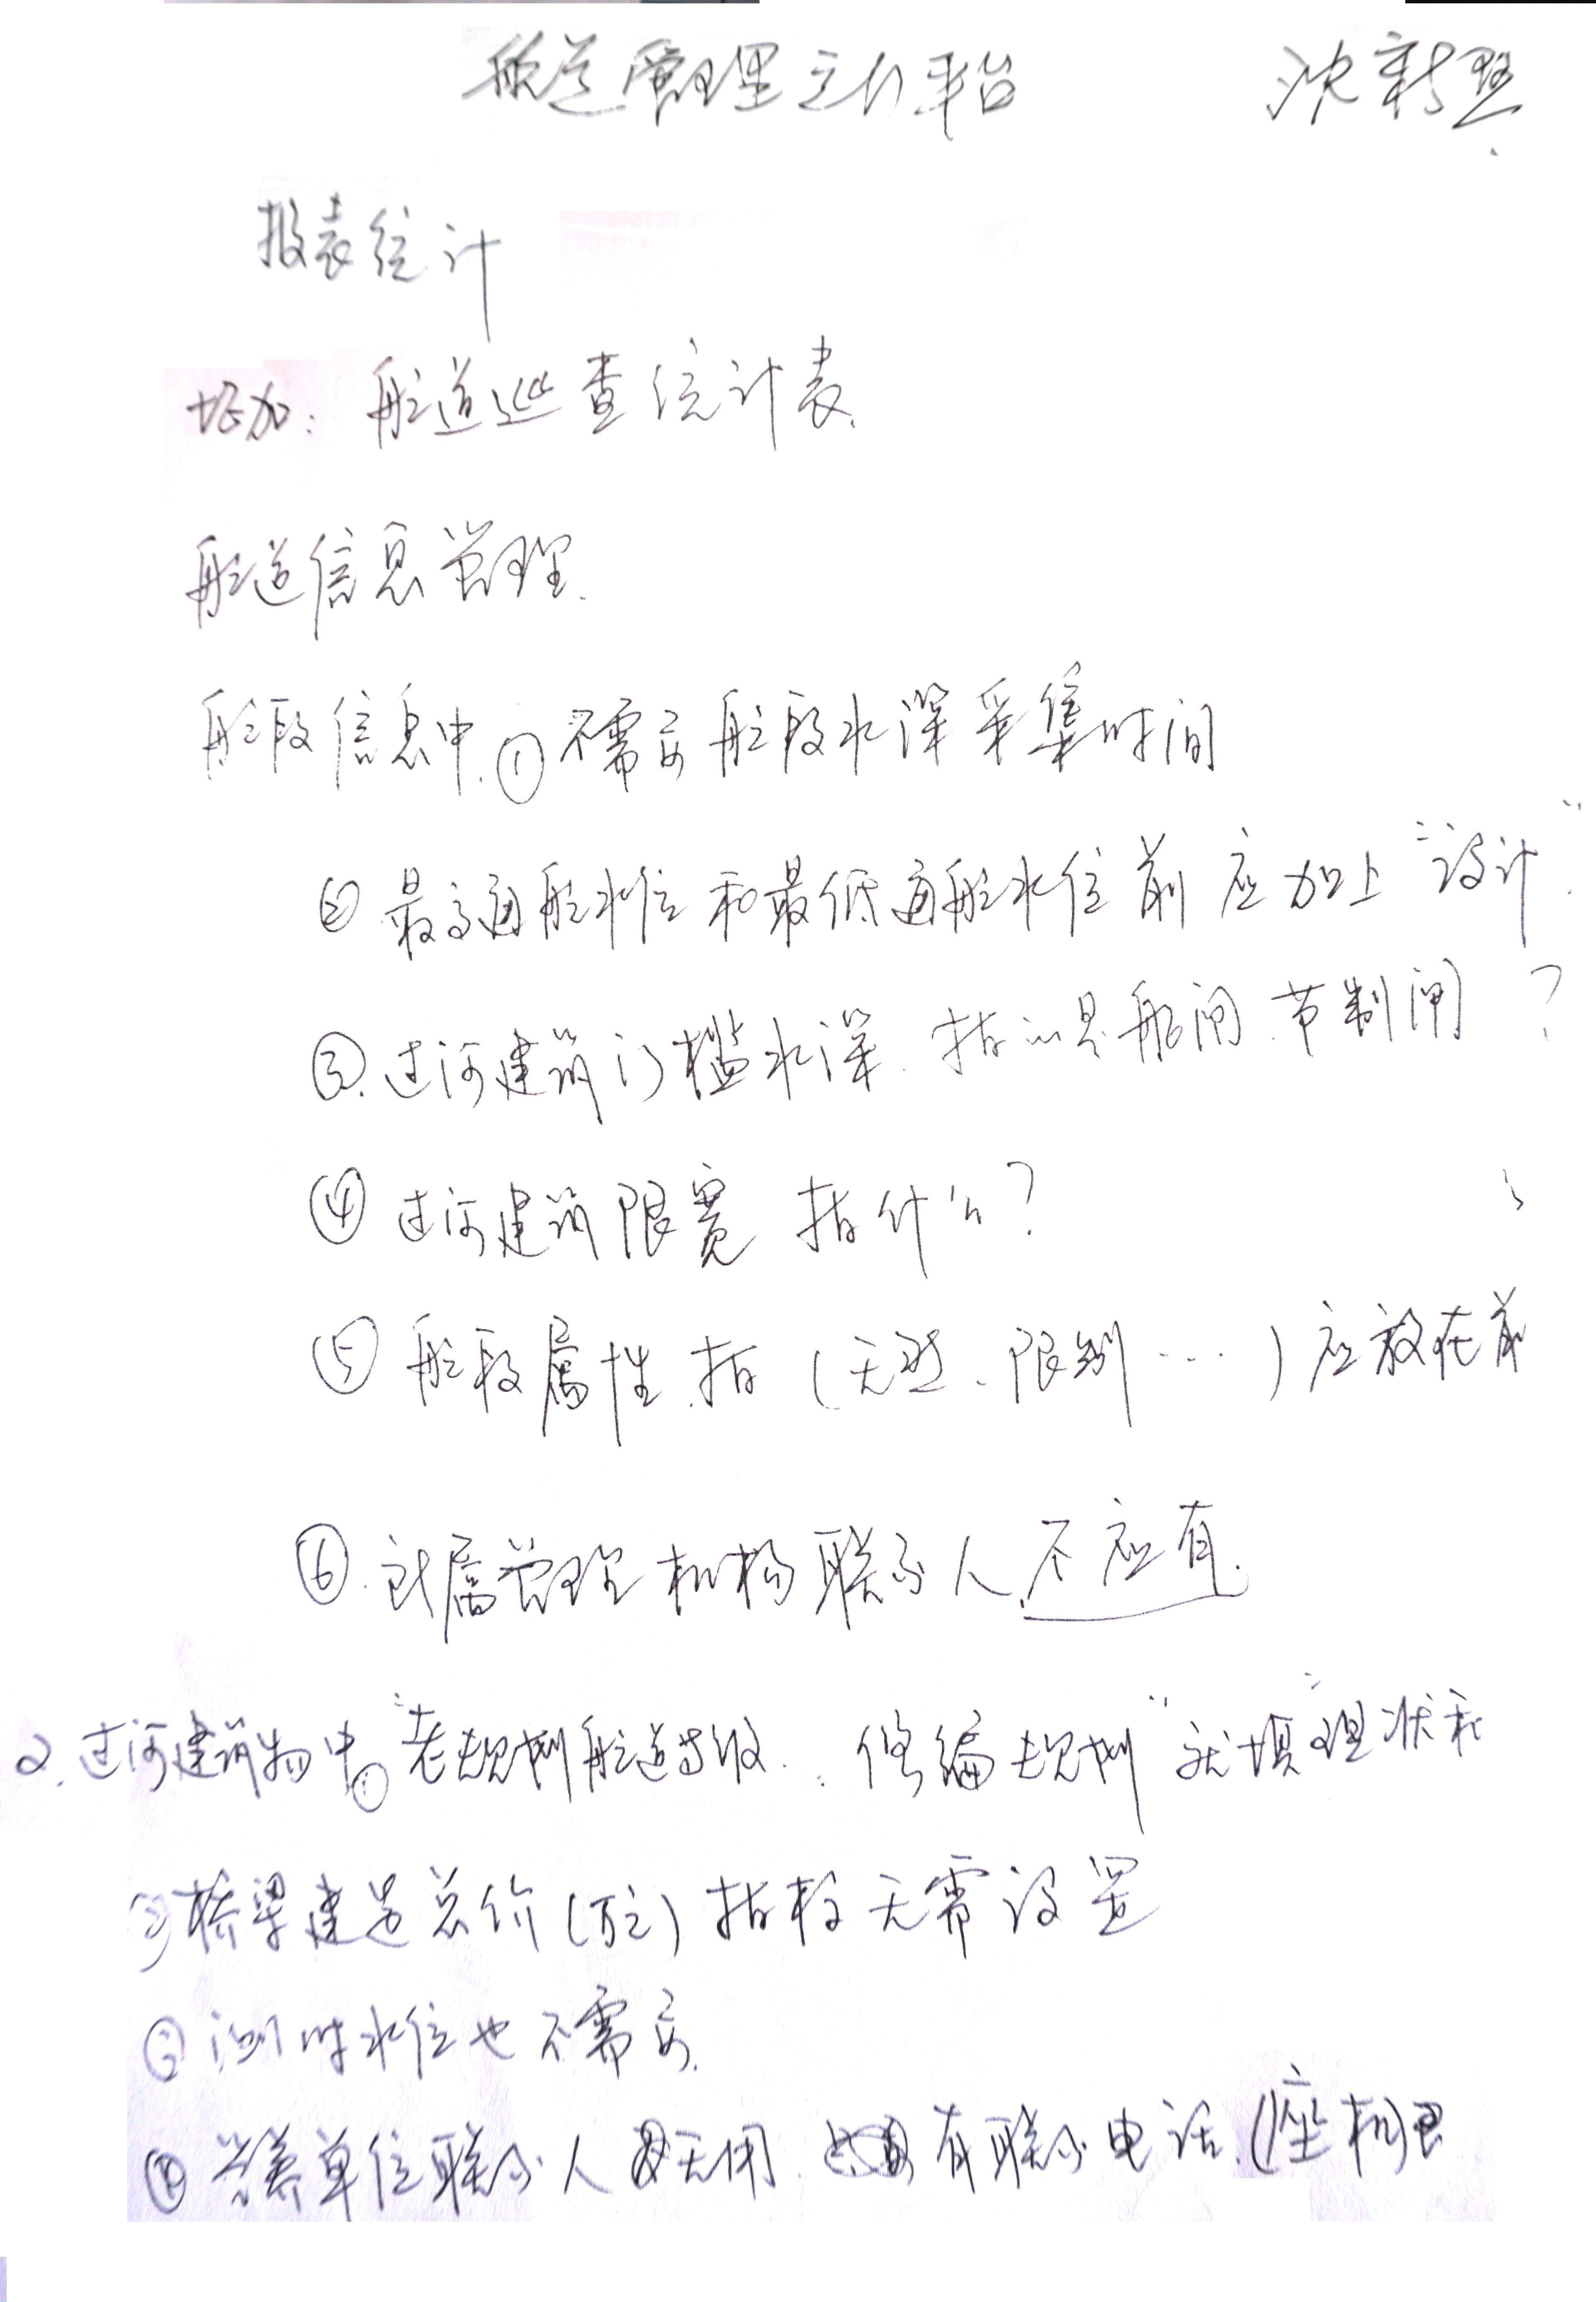 航道管理运行平台 沈新
报表统计
增加：航道巡查统计表.
航道信息管理.
航段信息中.①不需要航段水深采集时间
② 最高通航水位和最低通航水位前应加上“设计”.
③.过河建筑门槛水深.指的是船闸.节制闸？
④ 过河建筑限宽 指什么？
⑤ 航段属性.指（天然、限制…）应放在前
⑥.所属管理机构联系人.不应有.
2.过河建筑物中①“老规划航道等级..修编规划”就填“现状和
②桥梁建造总价(万元)指标无需设置
③测时水位也不需要.
④ 管养单位联系人 无用. 有联系电话.(座机)